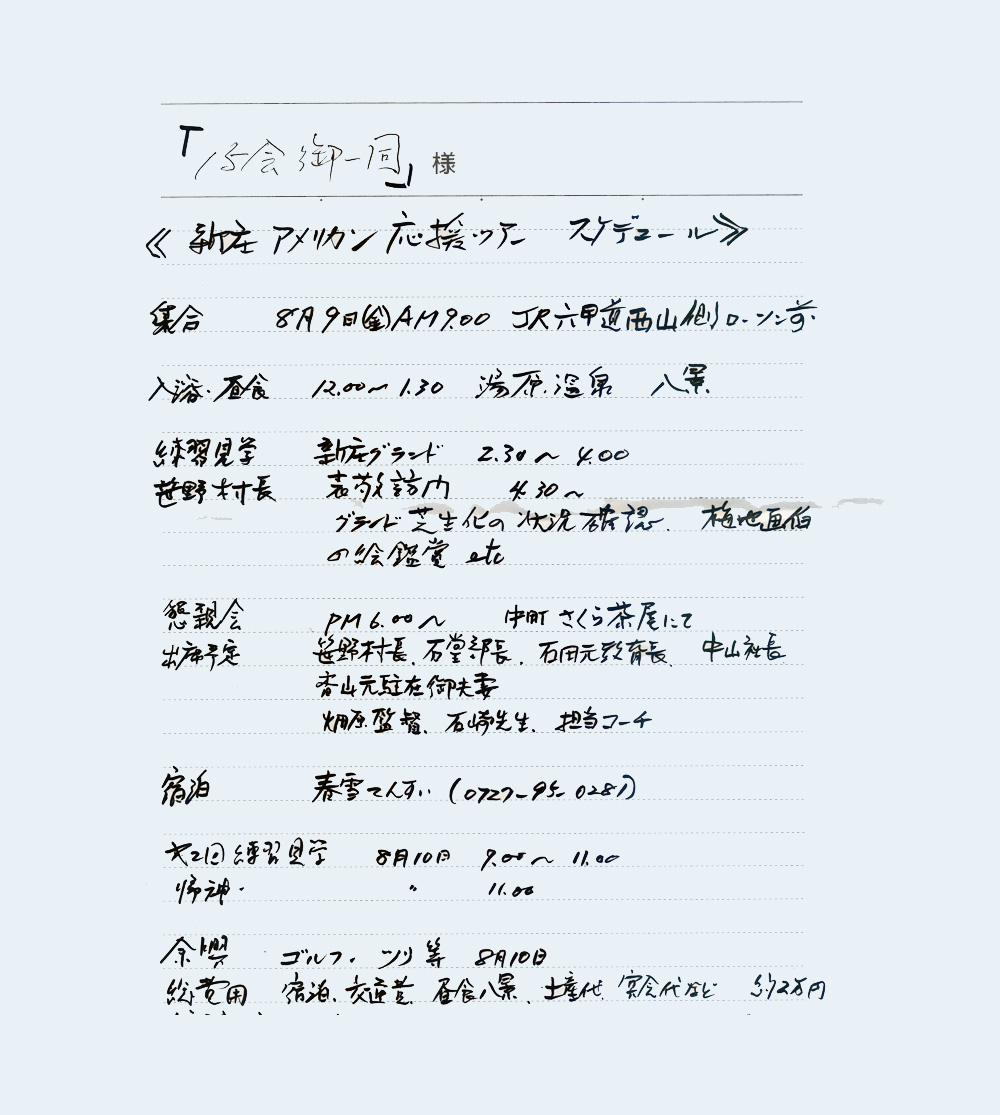 「15会御一同」様
≪新庄アメリカン応援ツアー スケジュール≫
集合 8月9日(金)AM9.00 JR六甲道西山側ローソン前
入浴・昼食 12.00〜1.30 湯原温泉 八景
練習見学 新庄グランド 2.30〜4.00
笹野村長 表敬訪問 4.30〜
グランド芝生化の状況確認、梅地画伯
の絵鑑賞 etc
懇親会 PM6.00〜 中町さくら茶屋にて
出席予定 笹野村長、石堂部長、石田元教育長、中山社長
香山元駐在御夫妻
畑原監督、石崎先生、担当コーチ
宿泊 春雪てんすい (0727-95-0287)
才2回練習見学 8月10日 9.00〜11.00
帰神・ 〃 11.00
余興 ゴルフ・ツリ等 8月10日
総費用 宿泊、交通費、昼食八景、土産代、宴会代など 約2万円